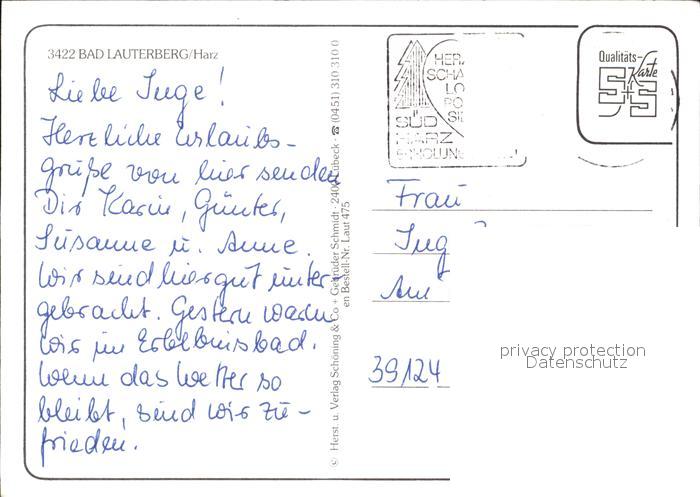 3422 BAD LAUTERBERG/Harz
Liebe Inge!
Herzliche Urlaubs-
grüße von hier senden
Dir Karin, Günter,
Susanne u. Anne.
Wir sind hier gut unter-
gebracht. Gestern waren
wir im Erlebnisbad.
Wenn das Wetter so
bleibt, sind wir zu-
frieden.
© Herst. u. Verlag Schöning & Co + Gebrüder Schmidt · 2400 Lübeck · ☎ (0451) 310 310 0
en Bestell-Nr. Laut 475
HER
SCHA
LO
PO
SI
SÜD
HARZ
Qualitäts-
Karte
S+S
Frau
Ing
Am
39124
privacy protection
Datenschutz